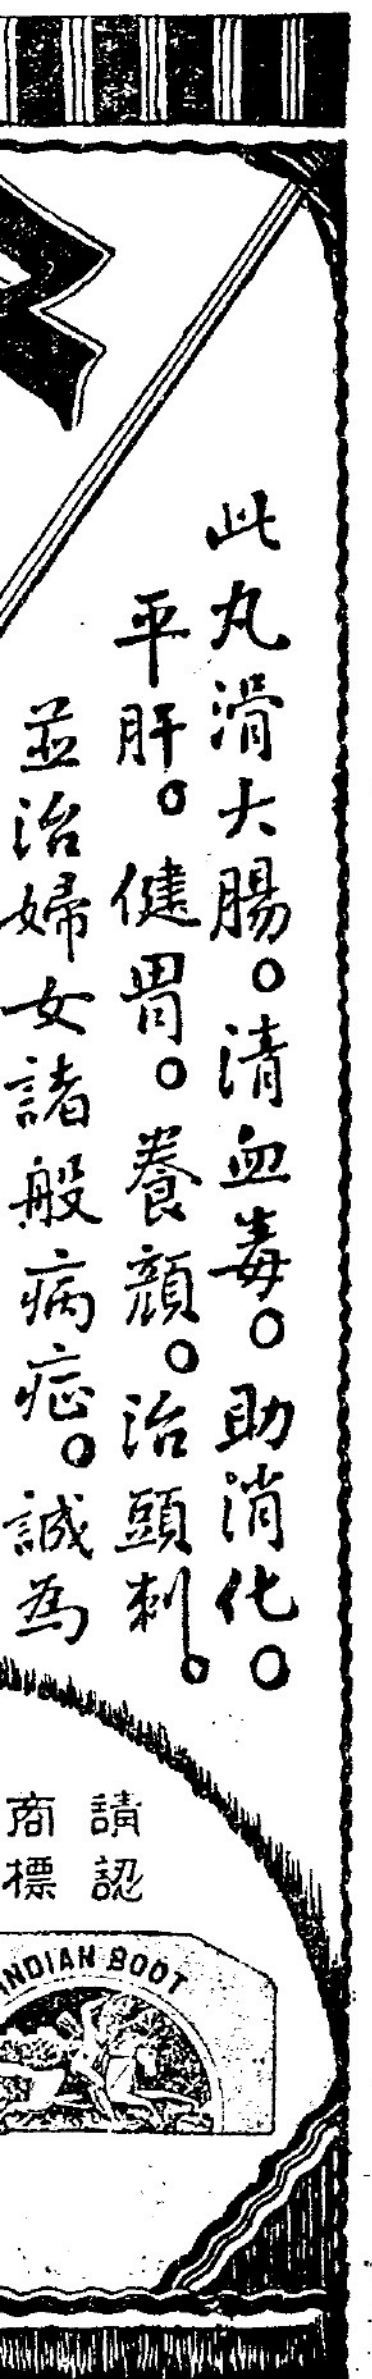 此丸滑大腸。清血毒。助消化。
平肝。健胃。養顏。治頭刺。
並治婦女諸般病症。誠為
請認
商標
INDIAN BOOT